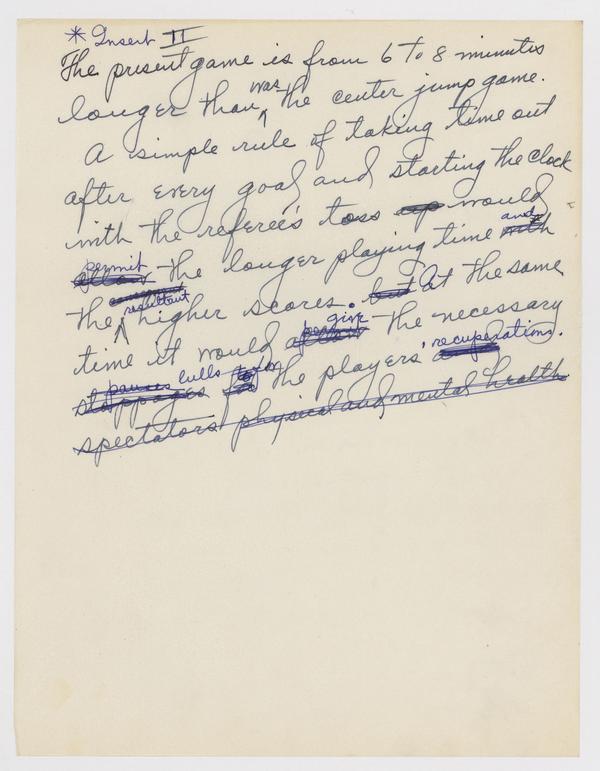 * Insert II
The present game is from 6 to 8 minutes
longer than was the center jump game.
A simple rule of taking time out
after every goal and starting the clock
with the referee's toss up would
and
permit
allow the longer playing time with
the resultant higher scores. but At the same
give
time it would allow the necessary
pauses lulls for the players' recuperations.
stoppages
spectators physical and mental health